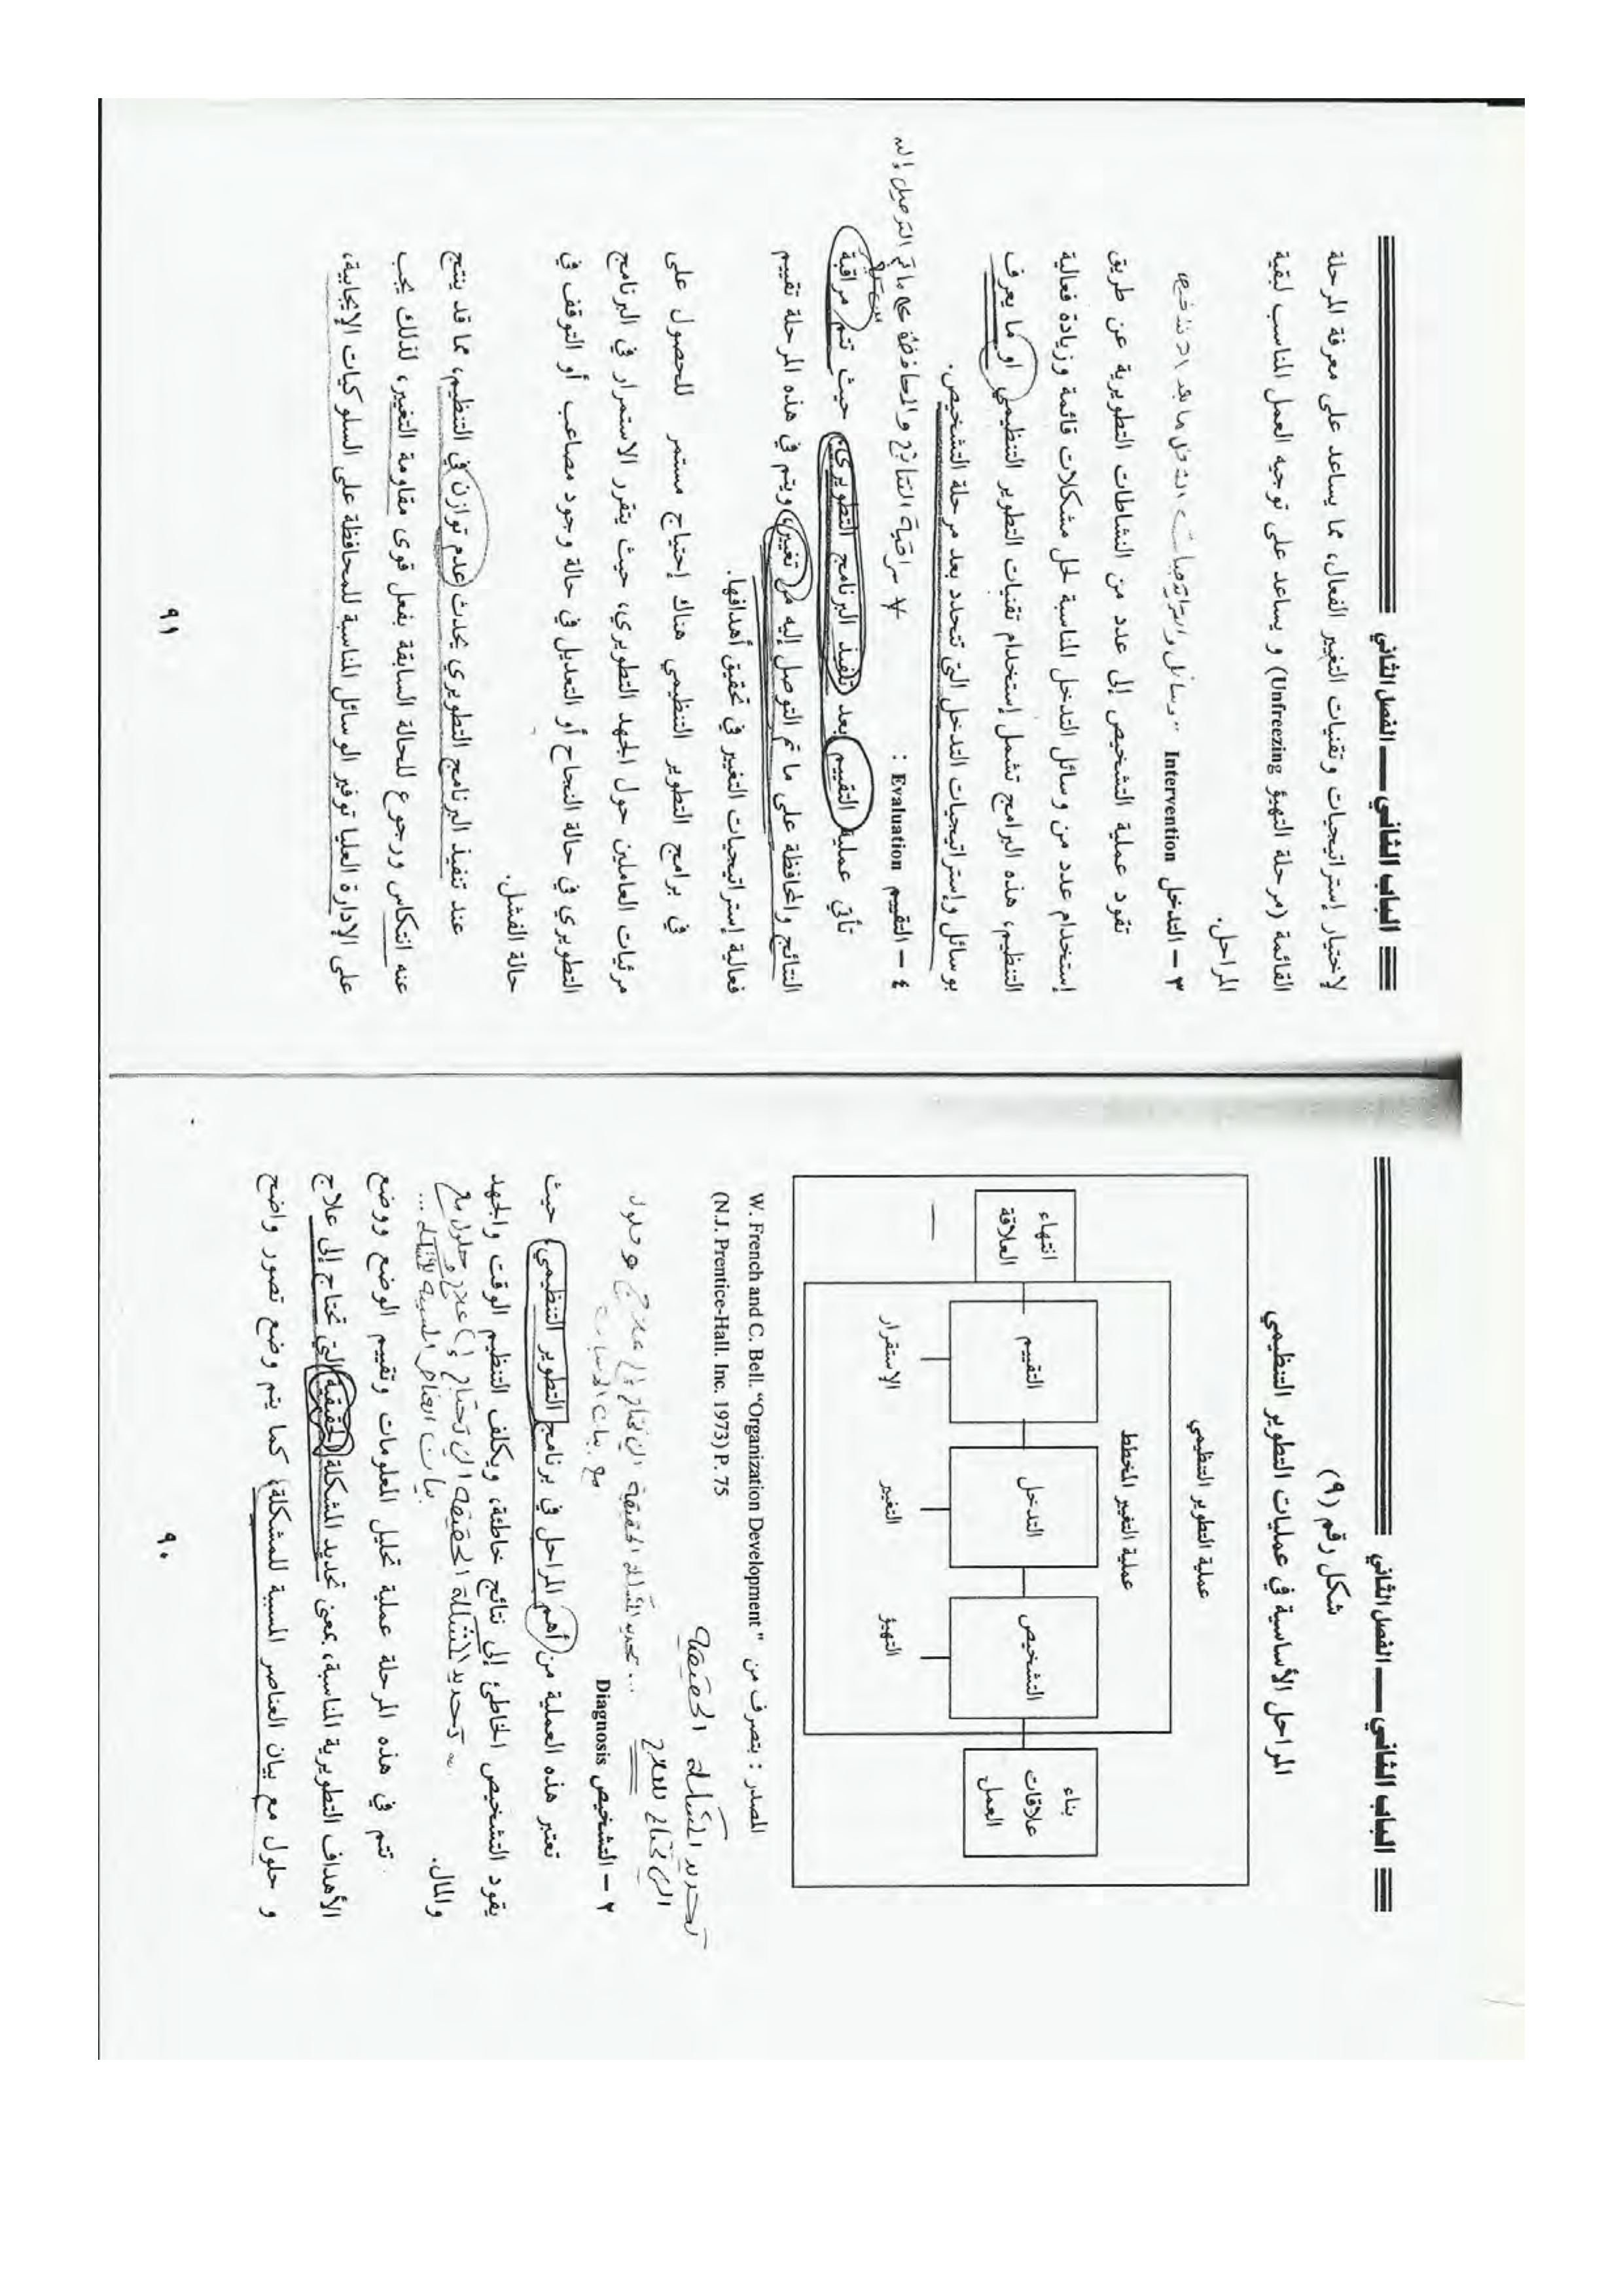 الباب الثاني — الفصل الثاني
شكل رقم (٩)
المراحل الأساسية في عمليات التطوير التنظيمي
عملية التطوير التنظيمي
عملية التغيير المخطط
بناء
علاقات
العمل
التشخيص
التدخل
التقييم
انتهاء
العلاقة
التهيؤ
التغيير
الإستقرار
المصدر : بتصرف من " W. French and C. Bell. “Organization Development
(N.J. Prentice-Hall. Inc. 1973) P. 75
تحديد المشكلة الحقيقية
التي تحتاج للعلاج
٢ – التشخيص Diagnosis
تعتبر هذه العملية من أهم المراحل في برنامج التطوير التنظيمي، حيث
يقود التشخيص الخاطئ إلى نتائج خاطئة، ويكلف التنظيم الوقت والجهد
والمال.
تتم في هذه المرحلة عملية تحليل المعلومات وتقييم الوضع ووضع
الأهداف التطويرية المناسبة، بمعنى تحديد المشكلة الحقيقية التي تحتاج إلى علاج
و حلول مع بيان العناصر المسببة للمشكلة، كما يتم وضع تصور واضح
٩٠
الباب الثاني — الفصل الثاني
لإختيار إستراتيجيات وتقنيات التغيير الفعال، مما يساعد على معرفة المرحلة
القائمة (مرحلة التهيؤ Unfreezing) و يساعد على توجيه العمل المناسب لبقية
المراحل.
٣ – التدخل Intervention
تقود عملية التشخيص إلى عدد من النشاطات التطويرية عن طريق
إستخدام عدد من وسائل التدخل المناسبة لحل مشكلات قائمة وزيادة فعالية
التنظيم، هذه البرامج تشمل إستخدام تقنيات التطوير التنظيمي أو ما يعرف
بوسائل وإستراتيجيات التدخل التي تتحدد بعد مرحلة التشخيص.
٤ – التقييم Evaluation : مراقبة النتائج والمحافظة على ما تم التوصل إليه
تأتي عملية التقييم بعد تنفيذ البرنامج التطويري، حيث تتم مراقبة
النتائج والمحافظة على ما تم التوصل إليه من تغيير، ويتم في هذه المرحلة تقييم
فعالية إستراتيجيات التغيير في تحقيق أهدافها.
في برامج التطوير التنظيمي هناك إحتياج مستمر للحصول على
مرئيات العاملين حول الجهد التطويري، حيث يتقرر الاستمرار في البرنامج
التطويري في حالة النجاح أو التعديل في حالة وجود مصاعب أو التوقف في
حالة الفشل.
عند تنفيذ البرنامج التطويري يحدث عدم توازن في التنظيم، مما قد ينتج
عنه انتكاس ورجوع للحالة السابقة بفعل قوى مقاومة التغيير، لذلك يجب
على الإدارة العليا توفير الوسائل المناسبة للمحافظة على السلوكيات الإيجابية،
٩١